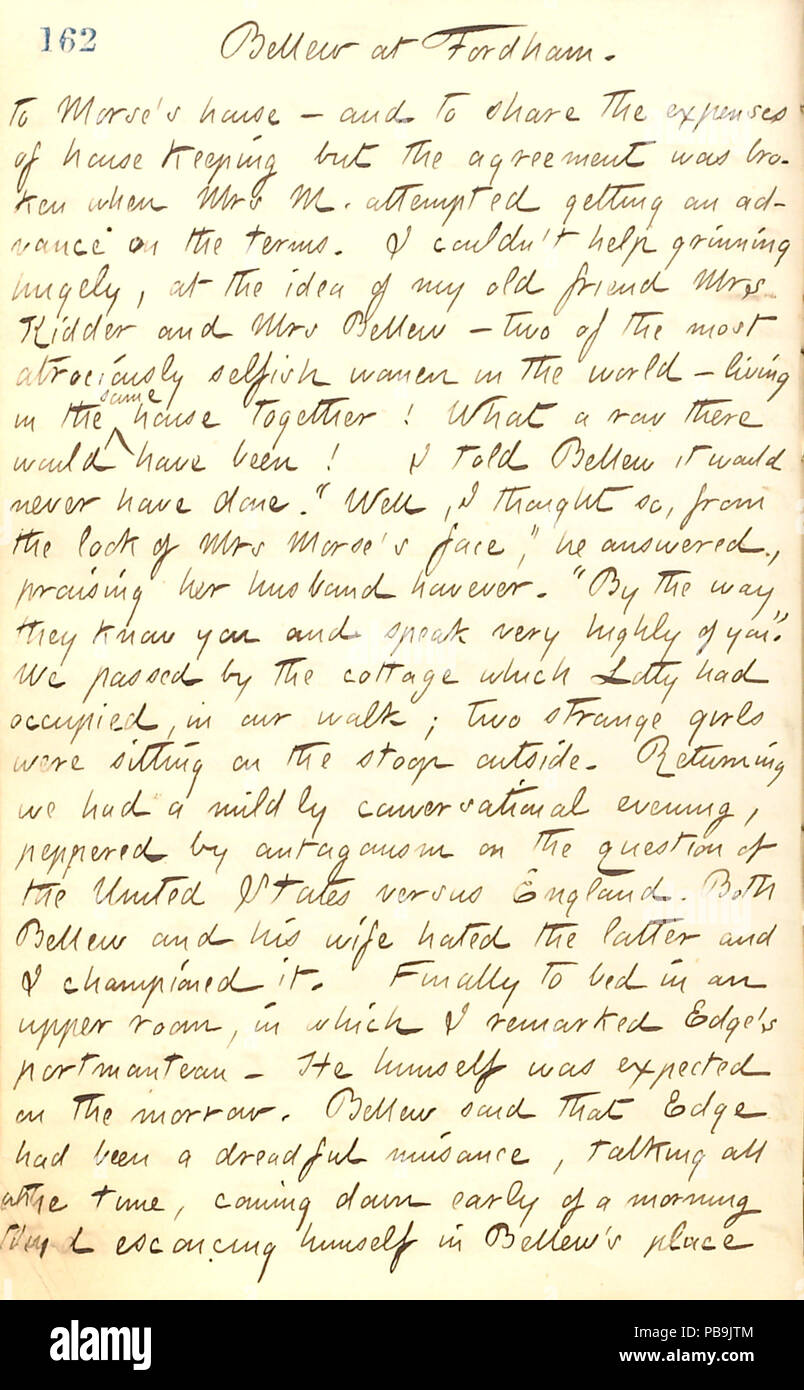 162
Bellew at Fordham.
to Morse's house – and to share the expenses
of house keeping but the agreement was bro-
ken when Mrs M. attempted getting an ad-
vance on the terms. I couldn't help grinning
hugely, at the idea of my old friend Mrs
Kidder and Mrs Bellew – two of the most
atrociously selfish women in the world – living
in the same house together! What a row there
would have been! I told Bellew it would
never have done. "Well, I thought so, from
the look of Mrs Morse's face," he answered,
praising her husband however. "By the way
they know you and speak very highly of you."
We passed by the cottage which Lotty had
occupied, in our walk; two strange girls
were sitting on the stoop outside. Returning
we had a mildly conversational evening,
peppered by antagonism on the question of
the United States versus England. Both
Bellew and his wife hated the latter and
I championed it. Finally to bed in an
upper room, in which I remarked Edge's
portmanteau – He himself was expected
on the morrow. Bellew said that Edge
had been a dreadful nuisance, talking all
the time, coming down early of a morning
esconcing himself in Bellew's place
alamy
alamy stock photo
PB9JTM
www.alamy.com